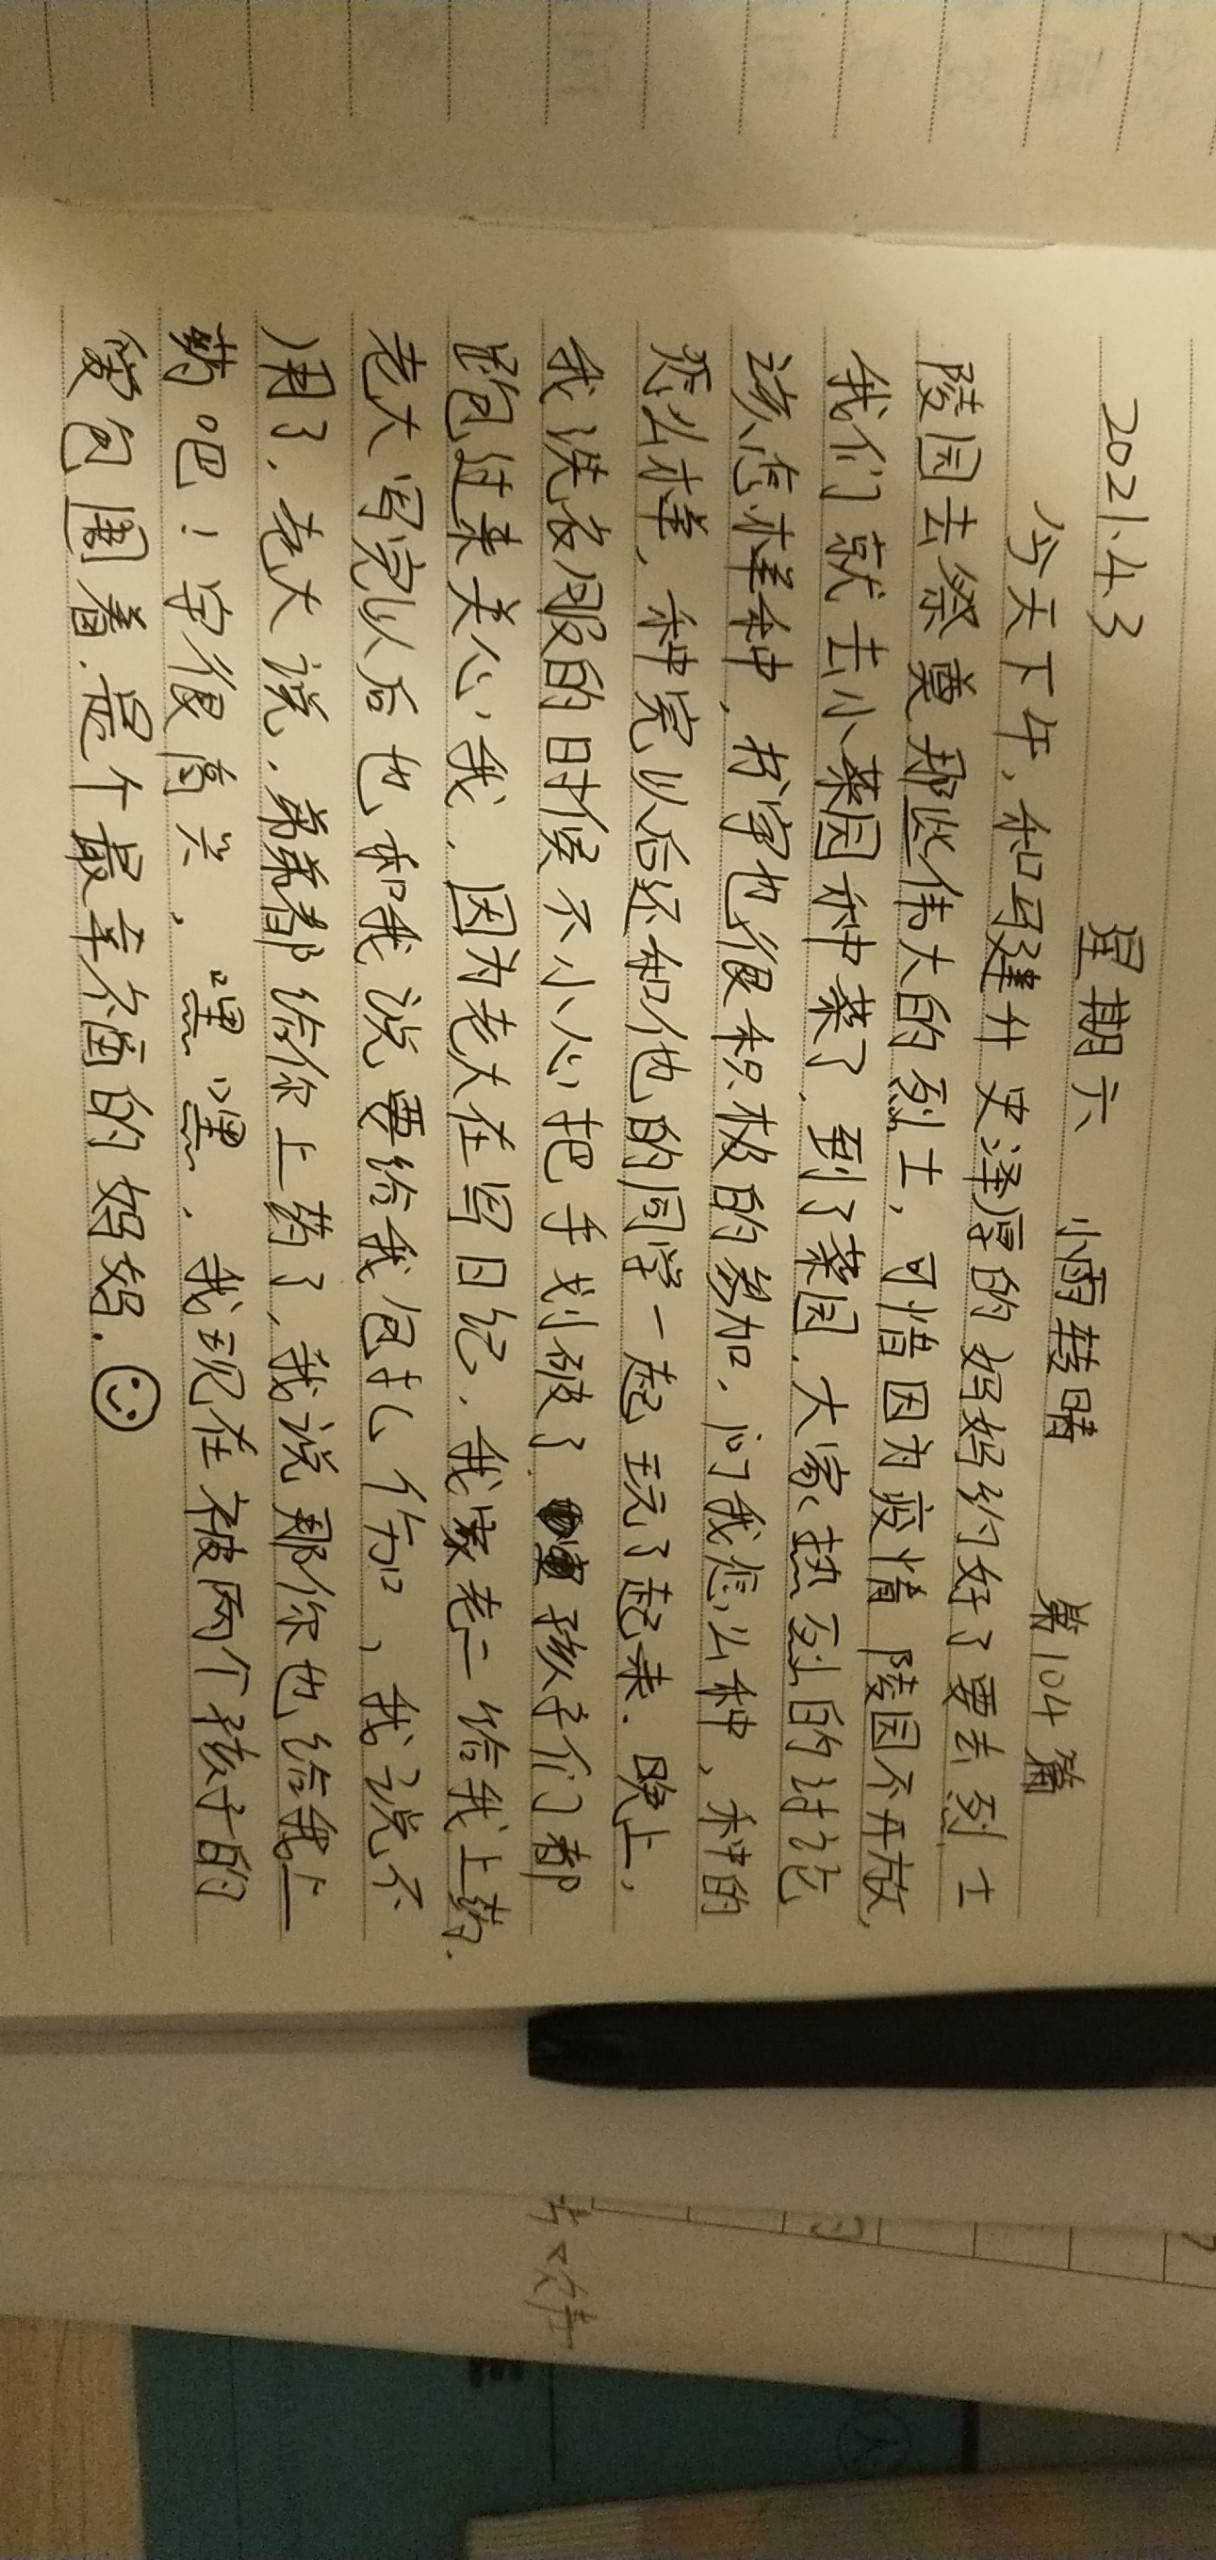 2021.4.3 星期六 小雨转晴 第104篇
今天下午,和马建升史泽厚的妈妈约好了要去烈士
陵园去祭奠那些伟大的烈士,可惜因为疫情陵园不开放,
我们就去小菜园种菜了,到了菜园,大家热烈的讨论
该怎样种,梓宇也很积极的参加,问我怎么种,种的
怎么样,种完以后还和他的同学一起玩了起来.晚上,
我洗衣服的时候不小心把手划破了,孩子们都
跑过来关心我,因为老大在写日记,我求老二给我上药.
老大写完以后也和我说要给我包扎伤口,我说不
用了,老大说,弟弟都给你上药了,我说那你也给我上
药吧!宇很高兴,嘿嘿,我现在被两个孩子的
爱包围着.是个最幸福的妈妈.